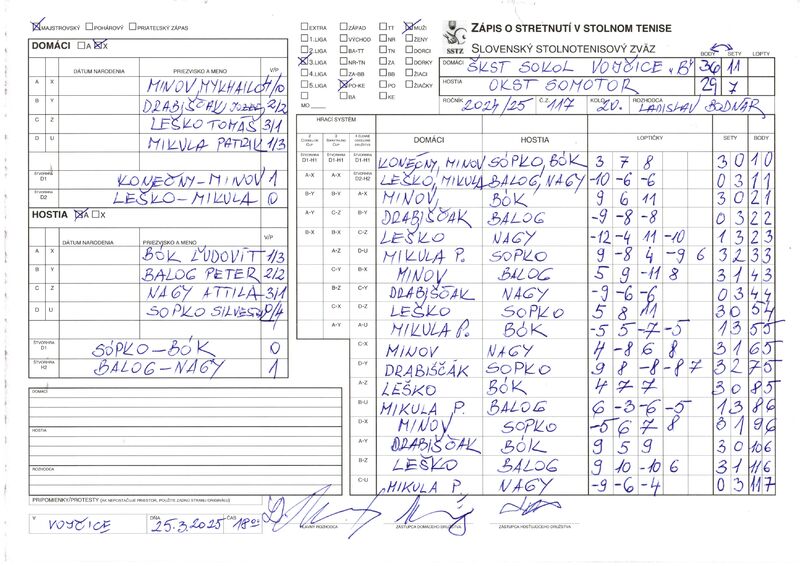 MAJSTROVSKÝ POHÁROVÝ PRIATEĽSKÝ ZÁPAS
DOMÁCI A X
DÁTUM NARODENIA PRIEZVISKO A MENO V/P
A X MINOV MYKHAILO 4/0
B Y DRABIŠČAK JOZEF 2/2
C Z LEŠKO TOMÁŠ 3/1
D U MIKULA PATRIK 1/3
ŠTVORHRA D1 KONEČNY-MINOV 1
ŠTVORHRA D2 LEŠKO-MIKULA 0
HOSTIA A X
DÁTUM NARODENIA PRIEZVISKO A MENO V/P
A X BÓK ĽUDOVÍT 1/3
B Y BALOG PETER 2/2
C Z NAGY ATTILA 3/1
D U SOPKO SILVESTER 0/4
ŠTVORHRA D1 SÓPKO-BÓK 0
ŠTVORHRA H2 BALOG-NAGY 1
DOMÁCI
HOSTIA
ROZHODCA
PRIPOMIENKY/PROTESTY (AK NEPOSTAČUJE PRIESTOR, POUŽITE ZADNÚ STRANU ORIGINÁLU)
V VOJČICE DŇA 25.3.2025 ČAS 18⁰⁰
HLAVNÝ ROZHODCA ZÁSTUPCA DOMÁCEHO DRUŽSTVA ZÁSTUPCA HOSŤUJÚCEHO DRUŽSTVA
EXTRA ZÁPAD TT MUŽI
1.LIGA VÝCHOD NR ŽENY
2.LIGA BA-TT TN DORCI
3.LIGA NR-TN ZA DORKY
4.LIGA ZA-BB BB ŽIACI
5.LIGA PO-KE PO ŽIAČKY
BA KE
MO
SSTZ
ZÁPIS O STRETNUTÍ V STOLNOM TENISE
SLOVENSKÝ STOLNOTENISOVÝ ZVÄZ
BODY SETY LOPTY
DOMÁCI ŠKST SOKOL VOJČICE "B" 36 11
HOSTIA OKST SOMOTOR 29 7
ROČNÍK 2024/25 Č.Z. 117 KOLO 20. ROZHODCA LADISLAV BODNÁR
HRACÍ SYSTÉM
DOMÁCI HOSTIA LOPTIČKY SETY BODY
ŠTVORHRA D1-H1 ŠTVORHRA D1-H1 ŠTVORHRA D1-H1 KONEČNY, MINOV SÓPKO, BÓK 3 7 8 3 0 1 0
A-X A-X ŠTVORHRA D2-H2 LEŠKO, MIKULA BALOG, NAGY -10 -6 -6 0 3 1 1
B-Y B-Y A-X MINOV, BÓK 9 6 11 3 0 2 1
A-Y C-Z B-Y DRABIŠČAK BALOG -9 -8 -8 0 3 2 2
B-X B-X C-Z LEŠKO NAGY -12 -4 11 -10 1 3 2 3
A-Z D-U MIKULA P. SOPKO 9 -8 4 -9 6 3 2 3 3
C-Y B-X MINOV BALOG 5 9 -11 8 3 1 4 3
B-Z C-Y DRABIŠČAK NAGY -9 -6 -6 0 3 4 4
C-X D-Z LEŠKO SOPKO 5 8 11 3 0 5 4
A-Y A-U MIKULA P. BÓK -5 5 -7 -5 1 3 5 5
C-X MINOV NAGY 4 -8 6 8 3 1 6 5
D-Y DRABIŠČÁK SOPKO 9 8 -8 -8 7 3 2 7 5
A-Z LEŠKO BÓK 4 7 7 3 0 8 5
B-U MIKULA P. BALOG 6 -3 -6 -5 1 3 8 6
D-X MINOV SOPKO -5 6 7 8 3 1 9 6
A-Y DRABIŠČAK BÓK 9 5 9 3 0 10 6
B-Z LEŠKO BALOG 9 10 -10 6 3 1 11 6
C-U MIKULA P. NAGY -9 -6 -4 0 3 11 7